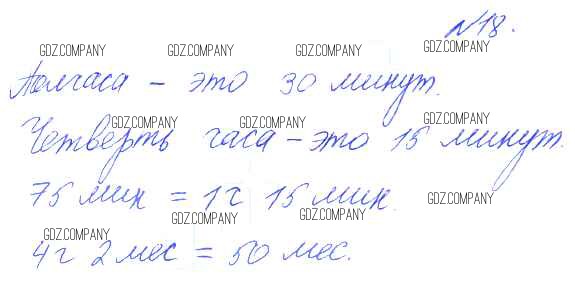 №18.
GDZ.COMPANY GDZ.COMPANY GDZ.COMPANY GDZ.COMPANY
Полчаса - это 30 минут.
GDZ.COMPANY GDZ.COMPANY GDZ.COMPANY
Четверть часа - это 15 минут.
75 мин = 1 ч 15 мин.
GDZ.COMPANY GDZ.COMPANY GDZ.COMPANY
GDZ.COMPANY
4 г 2 мес = 50 мес.